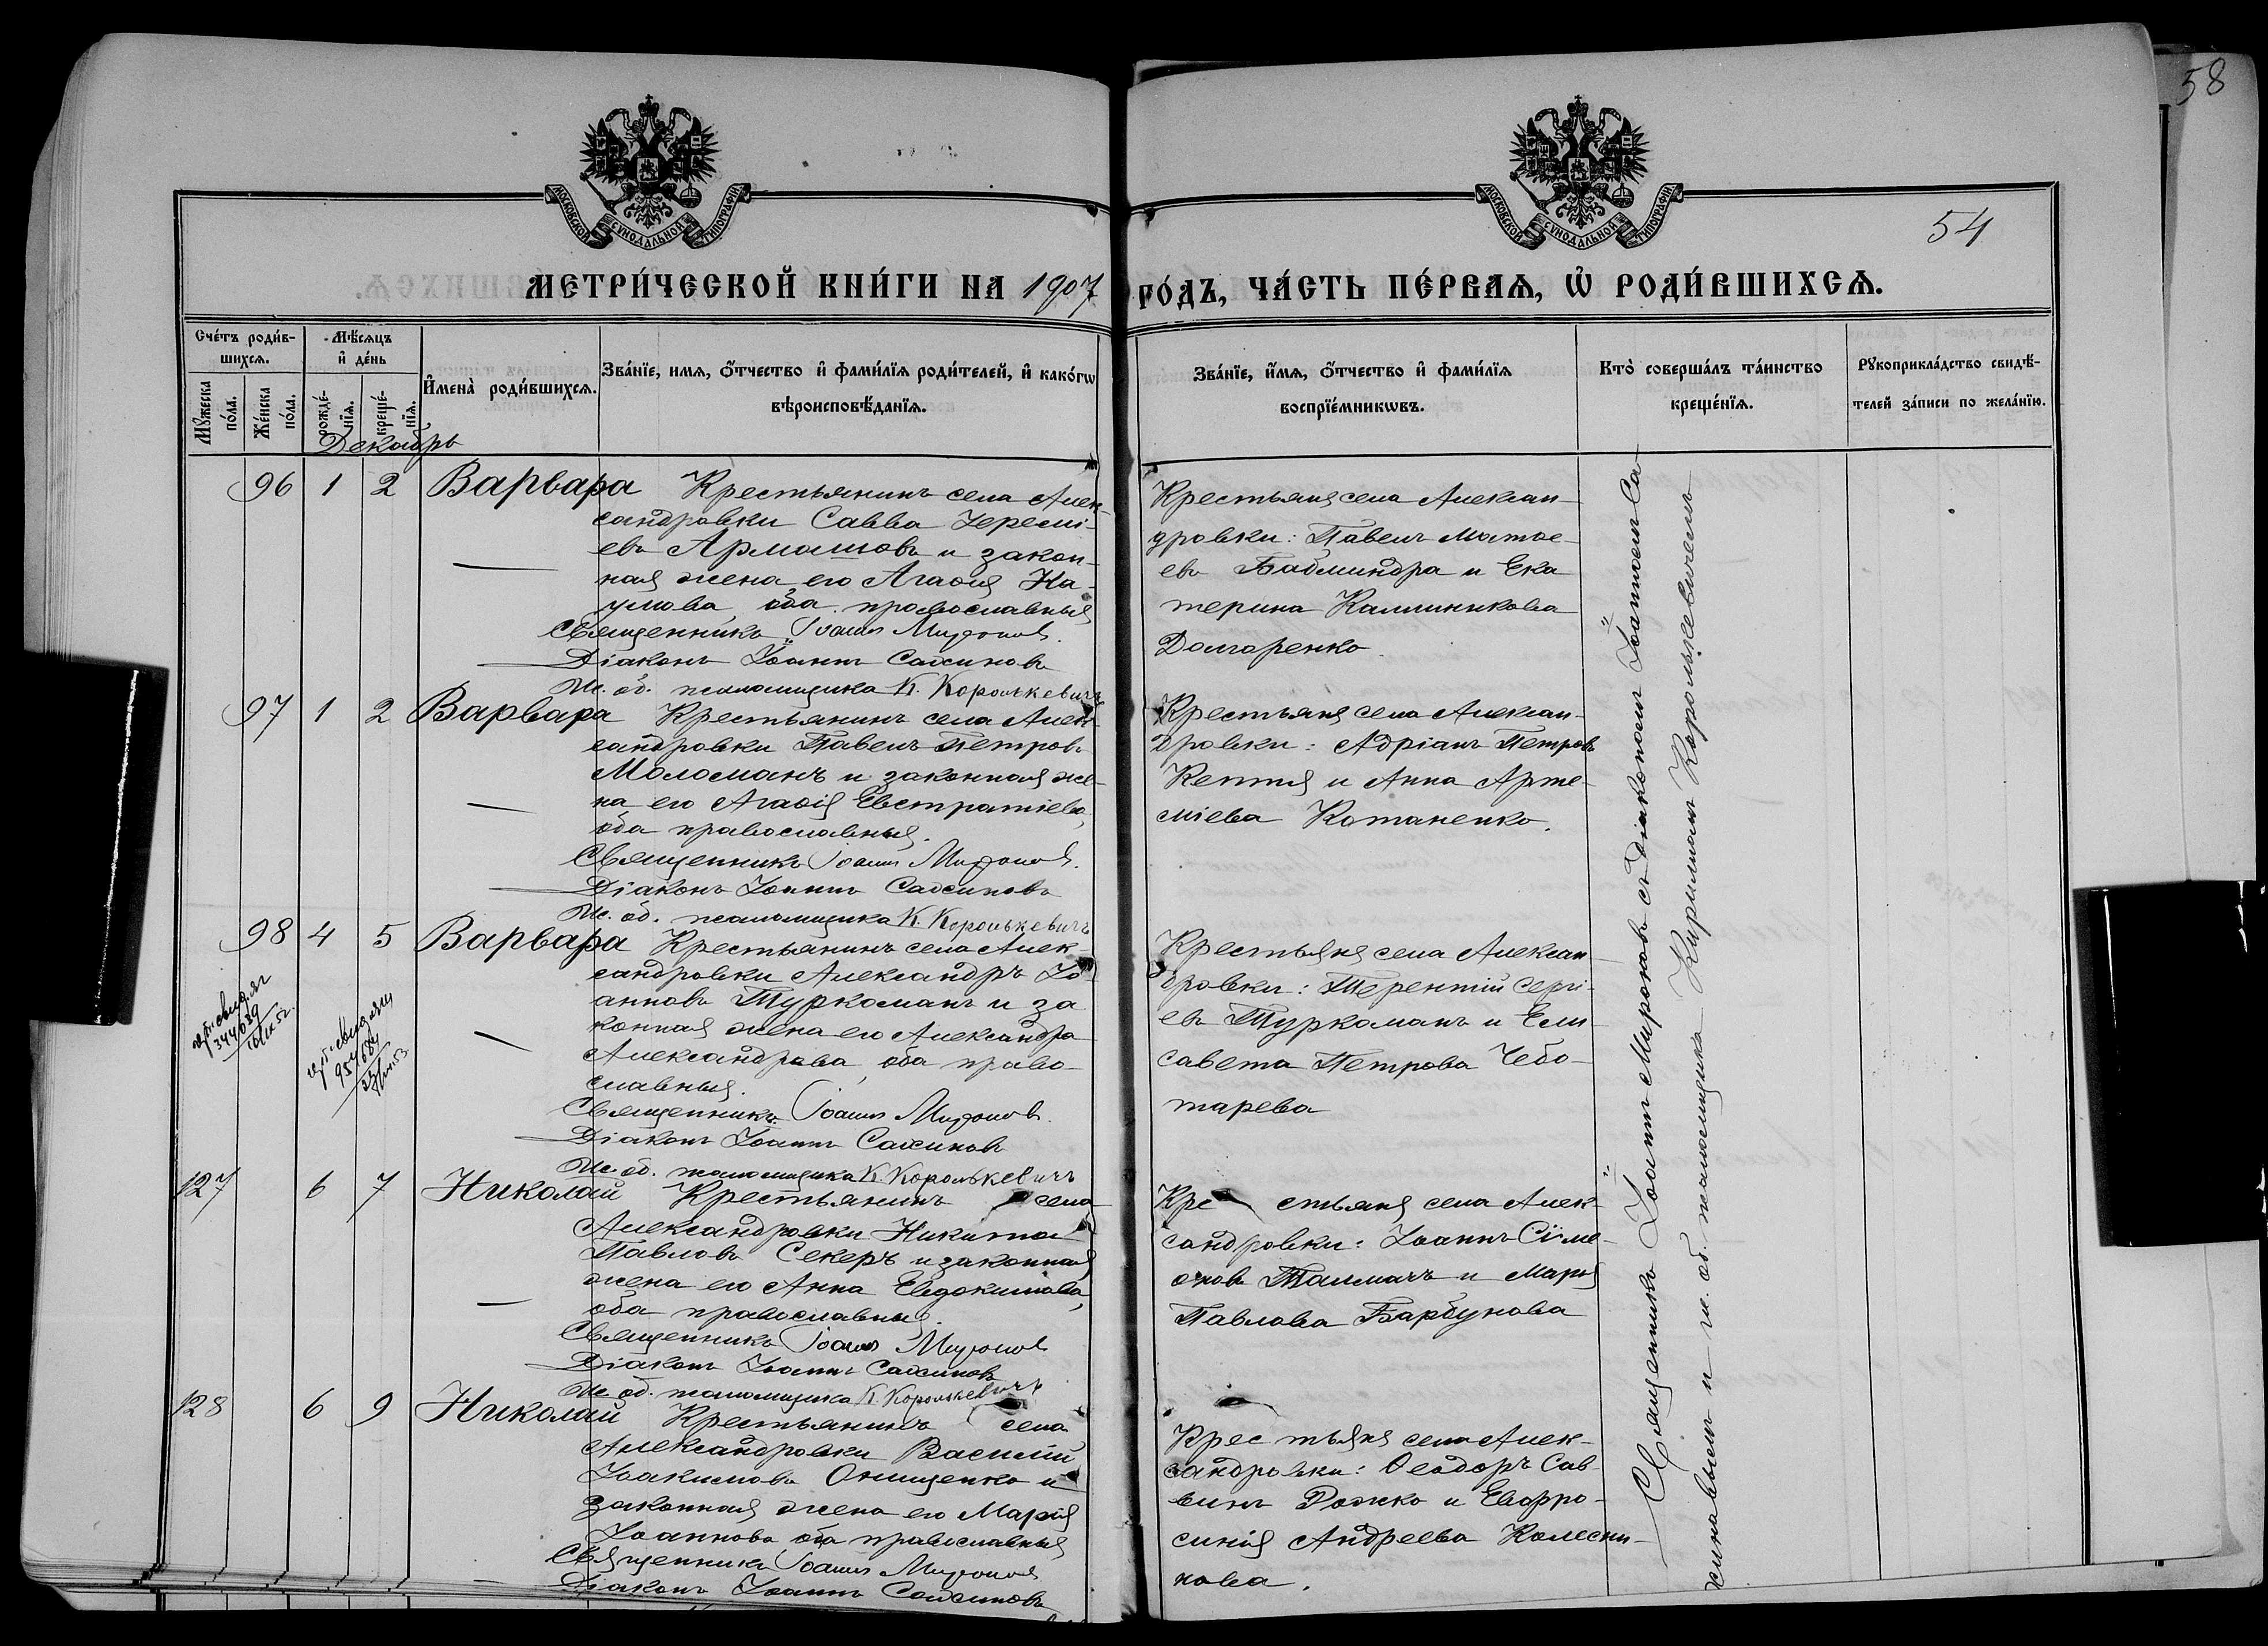 58
МОСКОВСКОЙ СУНОДАЛЬНОЙ ТИПОГРАФІИ
МОСКОВСКОЙ СУНОДАЛЬНОЙ ТИПОГРАФІИ
54
МЕТРИ́ЧЕСКОЙ КНИ́ГИ НА 1907 ГО́ДЪ, ЧА́СТЬ ПЕ́РВАѦ, Ѡ҆ РОДИ́ВШИХСѦ.
Сче́тъ роди́в-
шихсѧ.
Мѣ́сѧцъ
и҆ де́нь
Мꙋ́жеска
по́ла.
Же́нска
по́ла.
рожде́-
нїѧ.
креще́-
нїѧ.
И҆мена̀ роди́вшихсѧ.
Зва́нїе, имѧ, ѻ҆́тчество и҆ фами́лїѧ роди́телей, и҆ како́гѡ
вѣроисповѣ́данїѧ.
Зва́нїе, и҆́мѧ, ѻ҆́тчество и҆ фами́лїѧ
воспрїе́мникѡвъ.
Кто̀ соверша́лъ та́инство
креще́нїѧ.
Рꙋкоприкла́дство свидѣ́-
телей за́писи по жела́нїю.
Декабрь
96 1 2 Варвара
Крестьянинъ села Алек-
сандровки Савва Іереми-
евъ Армашовъ и закон-
ная жена его Агаѳія На-
умова, оба православныя
Священникъ Іоаннъ Мироновъ.
Діаконъ Іоаннъ Сахсиновъ
Ис. об. псаломщика К. Королькевичъ
Крестьяня села Алексан-
дровки: Павелъ Матѳе-
евъ Бадминдра и Ека
терина Каллиникова
Долгоренко.
97 1 2 Варвара
Крестьянинъ села Алек-
сандровки Павелъ Петровъ
Моломанъ и законная же-
на его Агаѳія Евстратіева,
оба православныя.
Священникъ Іоаннъ Мироновъ.
Діаконъ Іоаннъ Сахсиновъ
Ис. об. псаломщика К. Королькевичъ
Крестьяня села Алексан-
дровки: Адріанъ Петровъ
Кептя и Анна Арте-
міева Котаненко.
98 4 5 Варвара
Крестьянинъ села Алек-
сандровки Александръ Іо-
анновъ Туркоманъ и за
конная жена его Александра
Александрова, оба право-
славныя.
Священникъ Іоаннъ Мироновъ.
Діаконъ Іоаннъ Сахсиновъ
Ис. об. псаломщика К. Королькевичъ
Крестьяня села Алексан-
дровки: Терентій Сергі-
евъ Туркоманъ и Ели
савета Петрова Чебо-
тарева
127 6 7 Николай
Крестьянинъ села
Александровки Никита
Павловъ Секеръ и законная
жена его Анна Евдокимова,
оба православныя.
Священникъ Іоаннъ Мироновъ
Діаконъ Іоаннъ Сахсиновъ
Ис. об. псаломщика К. Королькевичъ
Крестьяня села Алек-
сандровки: Іоаннъ Сѵме-
оновъ Талмачъ и Марія
Павлова Барбунова
128 6 9 Николай
Крестьянинъ села
Александровки Василій
Іоакимовъ Онищенко и
законная жена его Марія
Іоаннова, оба православныя
Священникъ Іоаннъ Мироновъ
Діаконъ Іоаннъ Сахсиновъ
Крестьяня села Алек-
сандровки: Ѳеодоръ Сав-
винъ Рожко и Евфро-
синія Андреева Колесни-
кова.
Священникъ Іоаннъ Мироновъ съ діакономъ Іоанномъ Са-
хсиновымъ и ис. об. псаломщика Кирилломъ Королькевичемъ